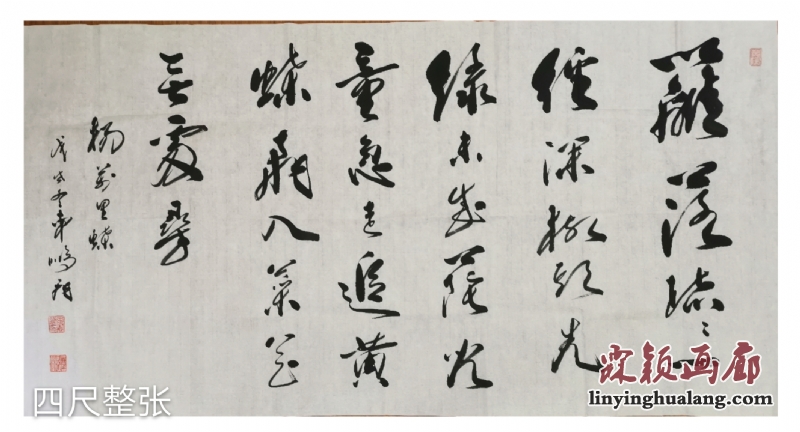 籬落疏〻一
徑深樹頭
綠未成蔭兒
童急走追黃
蝶飛入菜花
無處尋
楊萬里
戊戌
四尺整张
霖颖画廊
linyinghualang.com